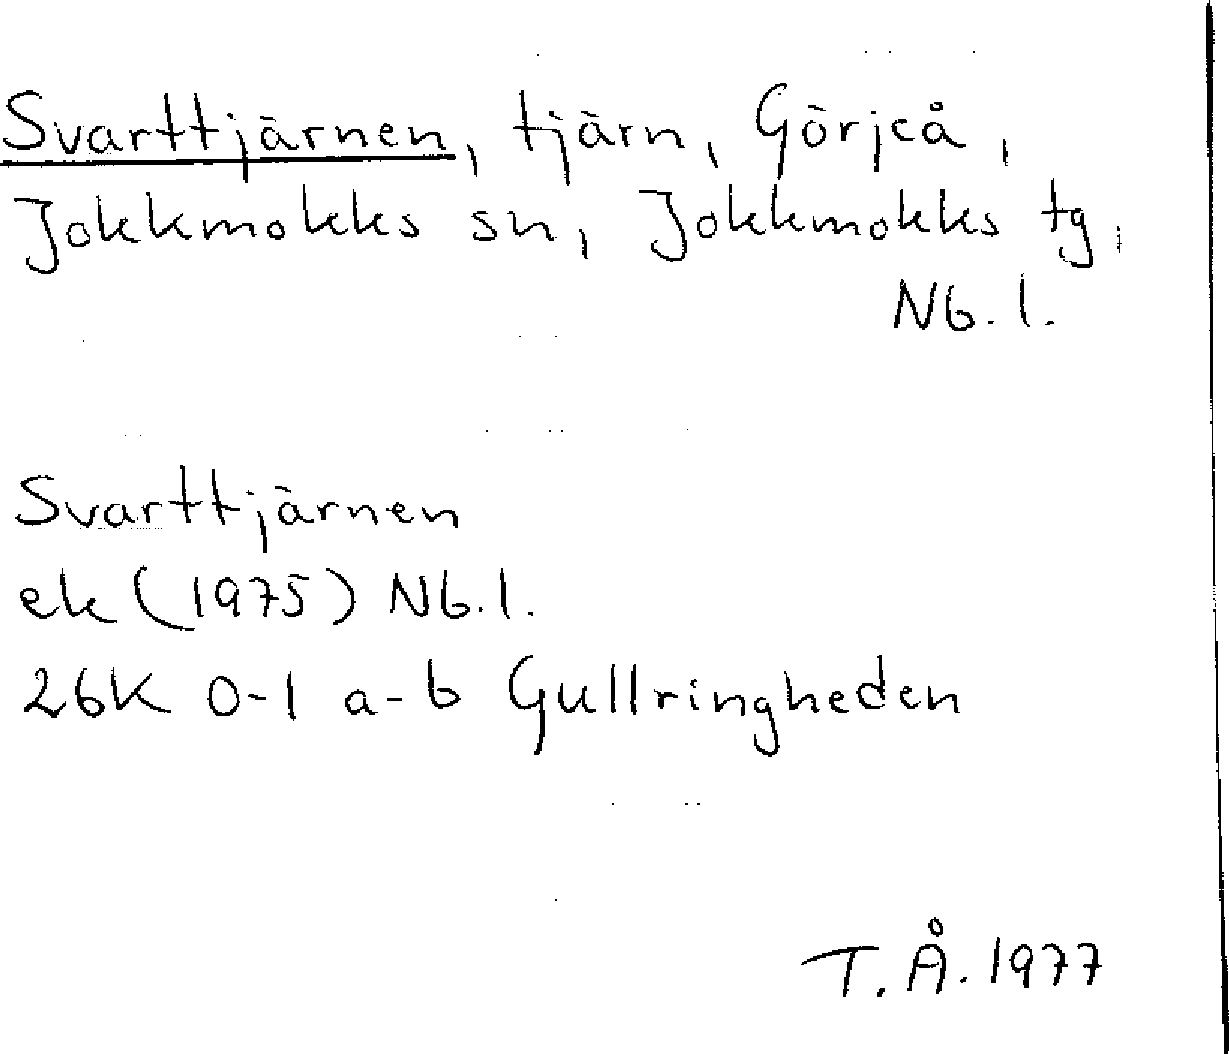 Svarttjärnen, tjärn, Görjeå,
Jokkmokks sn, Jokkmokks tg,
Nb. l.
Svarttjärnen
ek (1975) Nb. l.
26K 0-1 a-b Gullringheden
T. Å. 1977